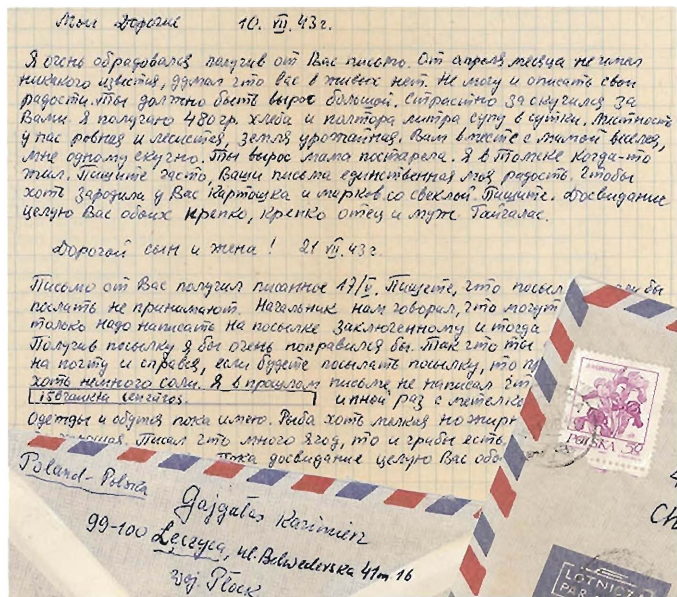 Мои Дорогие 10. VII. 43 г.
Я очень обрадовался получив от Вас письмо. От апреля месяца не имел
никакого известия, думал что вас в живых нет. Не могу и описать свои
радости. Ты должно быть вырос большой. Страстно заскучился за
Вами. Я получаю 480 гр. хлеба и полтора литра супу в сутки. Местность
у нас ровная и лесистая, земля урожайная. Вам вместе с мамой веселея,
мне одному скучно. Ты вырос мама постарела. Я в Томске когда-то
жил. Пишите часто, Ваши письма единственная моя радость. Чтобы
хоть зародила у Вас картошка и морков со свеклой. Пишите. Досвидание
целую Вас обоих крепко, крепко отец и муж Гайгалас.
Дорогой сын и жена! 21 VII. 43 г.
Письмо от Вас получил писанное 17/V. Пишете, что посыл бы
послать не принимают. Начальник нам говорил, что могут
только надо написать на посылке заключенному и тогда
Получив посылку я бы очень поправился бы. Так что ты
на почту и справся, если будете посылать посылку, то
хоть немного соли. Я в прошлом письме не написал
išbraukta cenzūros. иной раз с метелко
Одежды и обутся пока имею. Рыба хоть мелкая но жирн
Писал что много ягод, то и грибы есть
Пока досвидание целую Вас обо
Poland-Polska
Gajgalas Kazimierz
99-100 Łęczyca, ul. Belwederska 41 m 16
woj Płock
POLSKA 50
Ch
LOTNICZ
PAR